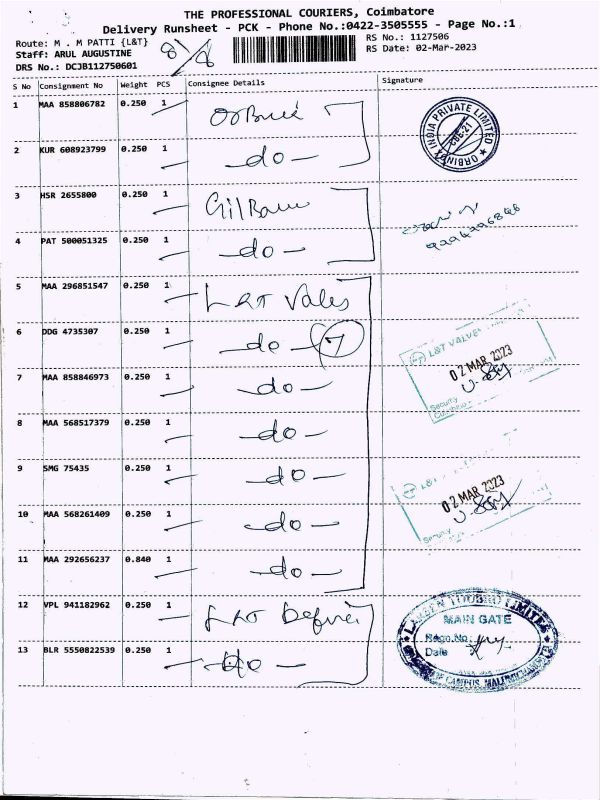 THE PROFESSIONAL COURIERS, Coimbatore
Delivery Runsheet - PCK - Phone No.:0422-3505555 - Page No.:1
Route: M . M PATTI {L&T}
Staff: ARUL AUGUSTINE
DRS No.: DCJB112750601
8/8
RS No.: 1127506
RS Date: 02-Mar-2023
S No Consignment No Weight PCS Consignee Details Signature
1 MAA 858806782 0.250 1
INDIA PRIVATE LIMITED
2 KUR 608923799 0.250 1 - do -
3 HSR 2655800 0.250 1
4 PAT 500051325 0.250 1 - do -
5 MAA 296851547 0.250 1 L&T Valves
6 DDG 4735307 0.250 1 - do - 7
L&T VALVES
02 MAR 2023
Security
7 MAA 858846973 0.250 1 - do -
8 MAA 568517379 0.250 1 - do -
9 SMG 75435 0.250 1 - do -
02 MAR 2023
Security
10 MAA 568261409 0.250 1 - do -
11 MAA 292656237 0.840 1 - do -
12 VPL 941182962 0.250 1 L&T Defence
LARSEN TOUBRO LIMITED
MAIN GATE
Regn.No
Date
13 BLR 5550822539 0.250 1 - do -